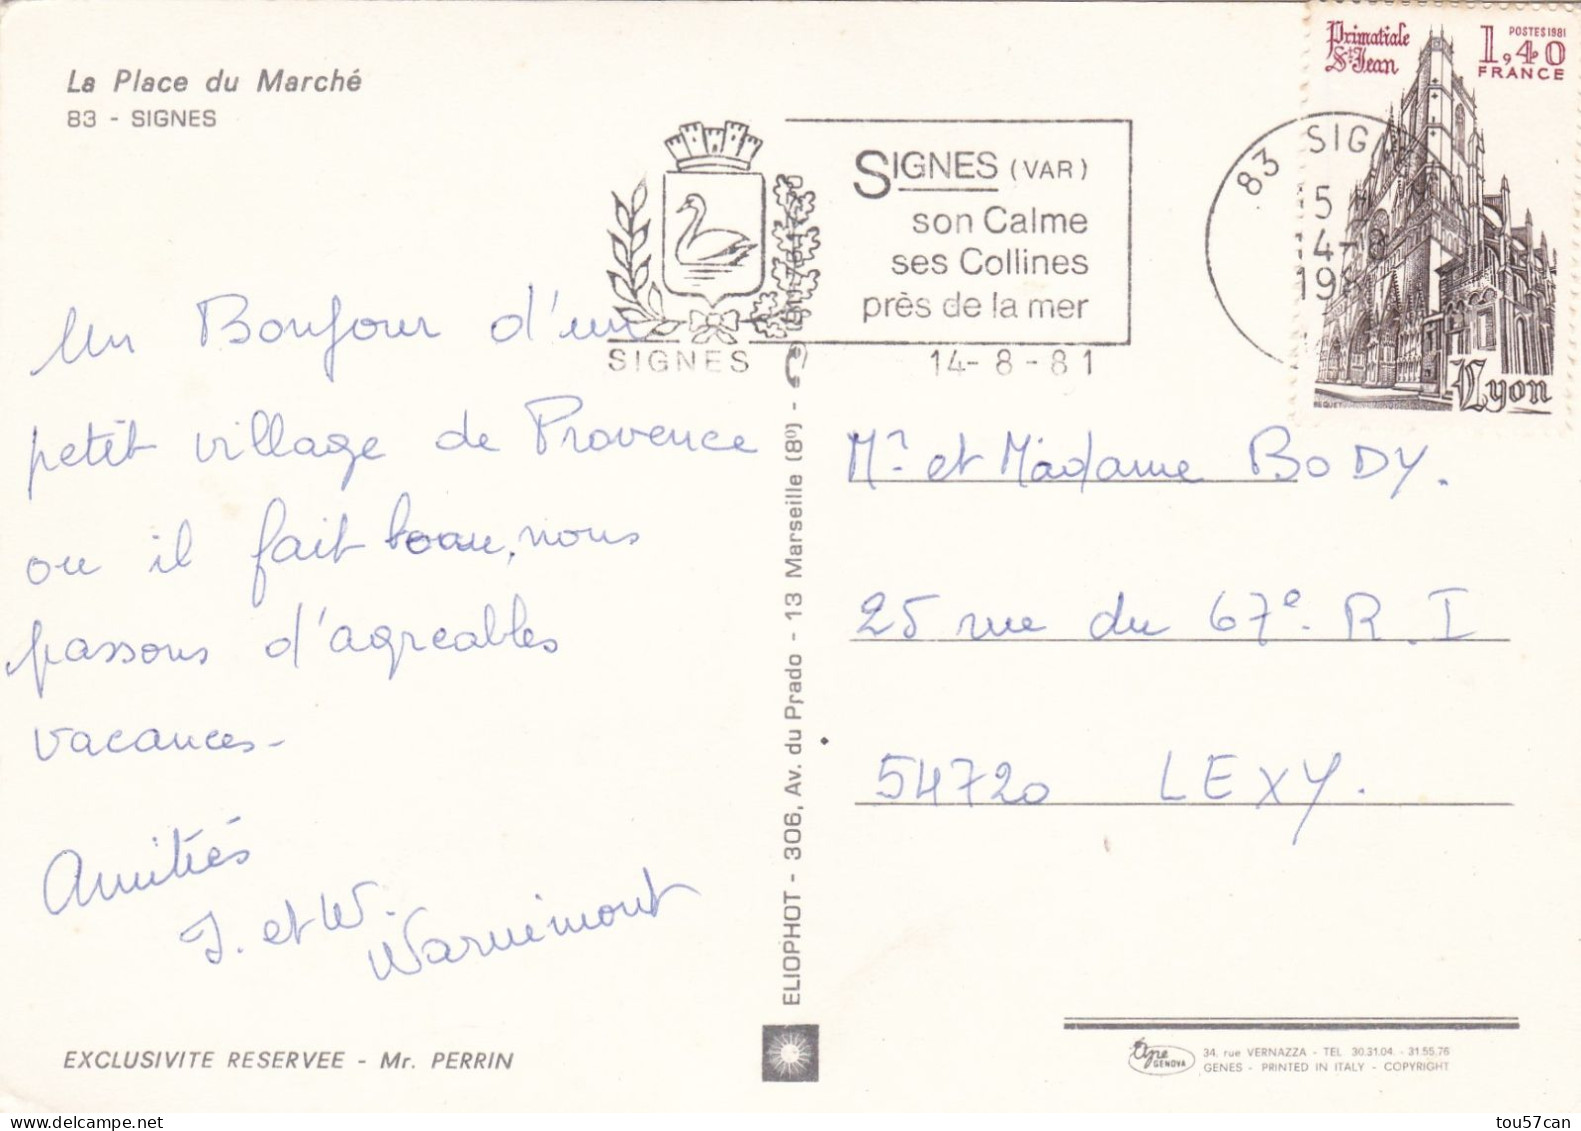 La Place du Marché
83 - SIGNES
Un Bonjour d'un
petit village de Provence
ou il fait beau, nous
passons d'agreables
vacances-
Amitiés
J. et W.
Warnimont
EXCLUSIVITE RESERVEE - Mr. PERRIN
SIGNES
SIGNES (VAR)
son Calme
ses Collines
près de la mer
14-8-81
83 SIGNES
15 H
14-8
198
Primatiale
St Jean
POSTES 1981
1,40
FRANCE
Lyon
ELIOPHOT - 306, Av. du Prado - 13 Marseille (8º) -
Mr. et Madame BODY.
25 rue du 67e. R. I
54720 LEXY.
Ape
GENOVA
34, rue VERNAZZA - TEL 30.31.04. - 31.55.76
GENES - PRINTED IN ITALY - COPYRIGHT
delcampe.net
tou57can